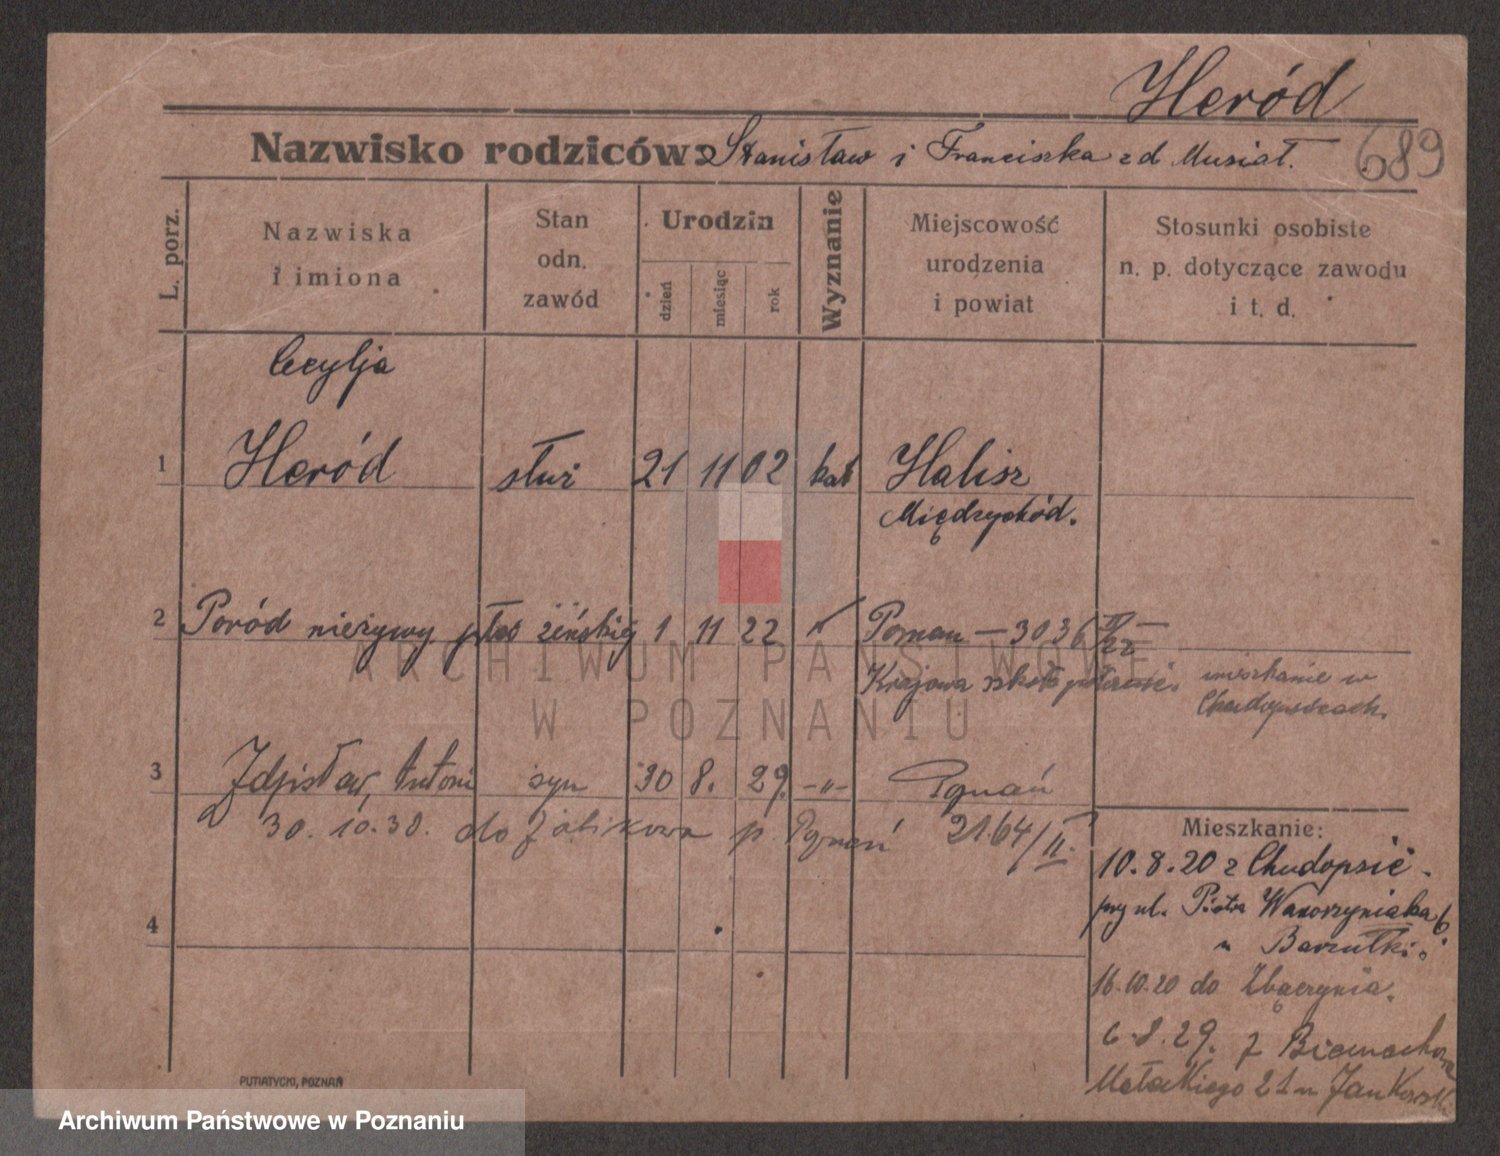 Heród
Nazwisko rodziców: Stanisław i Franciszka zd Musiał.
689
L. porz.
Nazwiska
i imiona
Stan
odn.
zawód
Urodzin
dzień
miesiąc
rok
Wyznanie
Miejscowość
urodzenia
i powiat
Stosunki osobiste
n. p. dotyczące zawodu
i t. d.
Cecylja
1 Heród służ 21 11 02 kat Halisz
Międzychód.
2 Poród nieżywy płeć żeńskiej 1 11 22 Poznań — 3036
Krajowa szkoła położnic.
mieszkanie w
Chudopsicach.
3 Zdzisław, Antoni syn 30 8. 29. -"- Poznań
30. 10. 30. do Żabikowa p. Poznań 2164/II.
4
Mieszkanie:
10.8.20 z Chudopsic.
przy ul. Piotra Wawrzyniaka 6
u Barzułki.
16.10.20 do Zbączynia.
6.8.29. z
Małeckiego 21 u Jankowski
PUTIATYCKI, POZNAŃ
ARCHIWUM PAŃSTWOWE
W POZNANIU
Archiwum Państwowe w Poznaniu